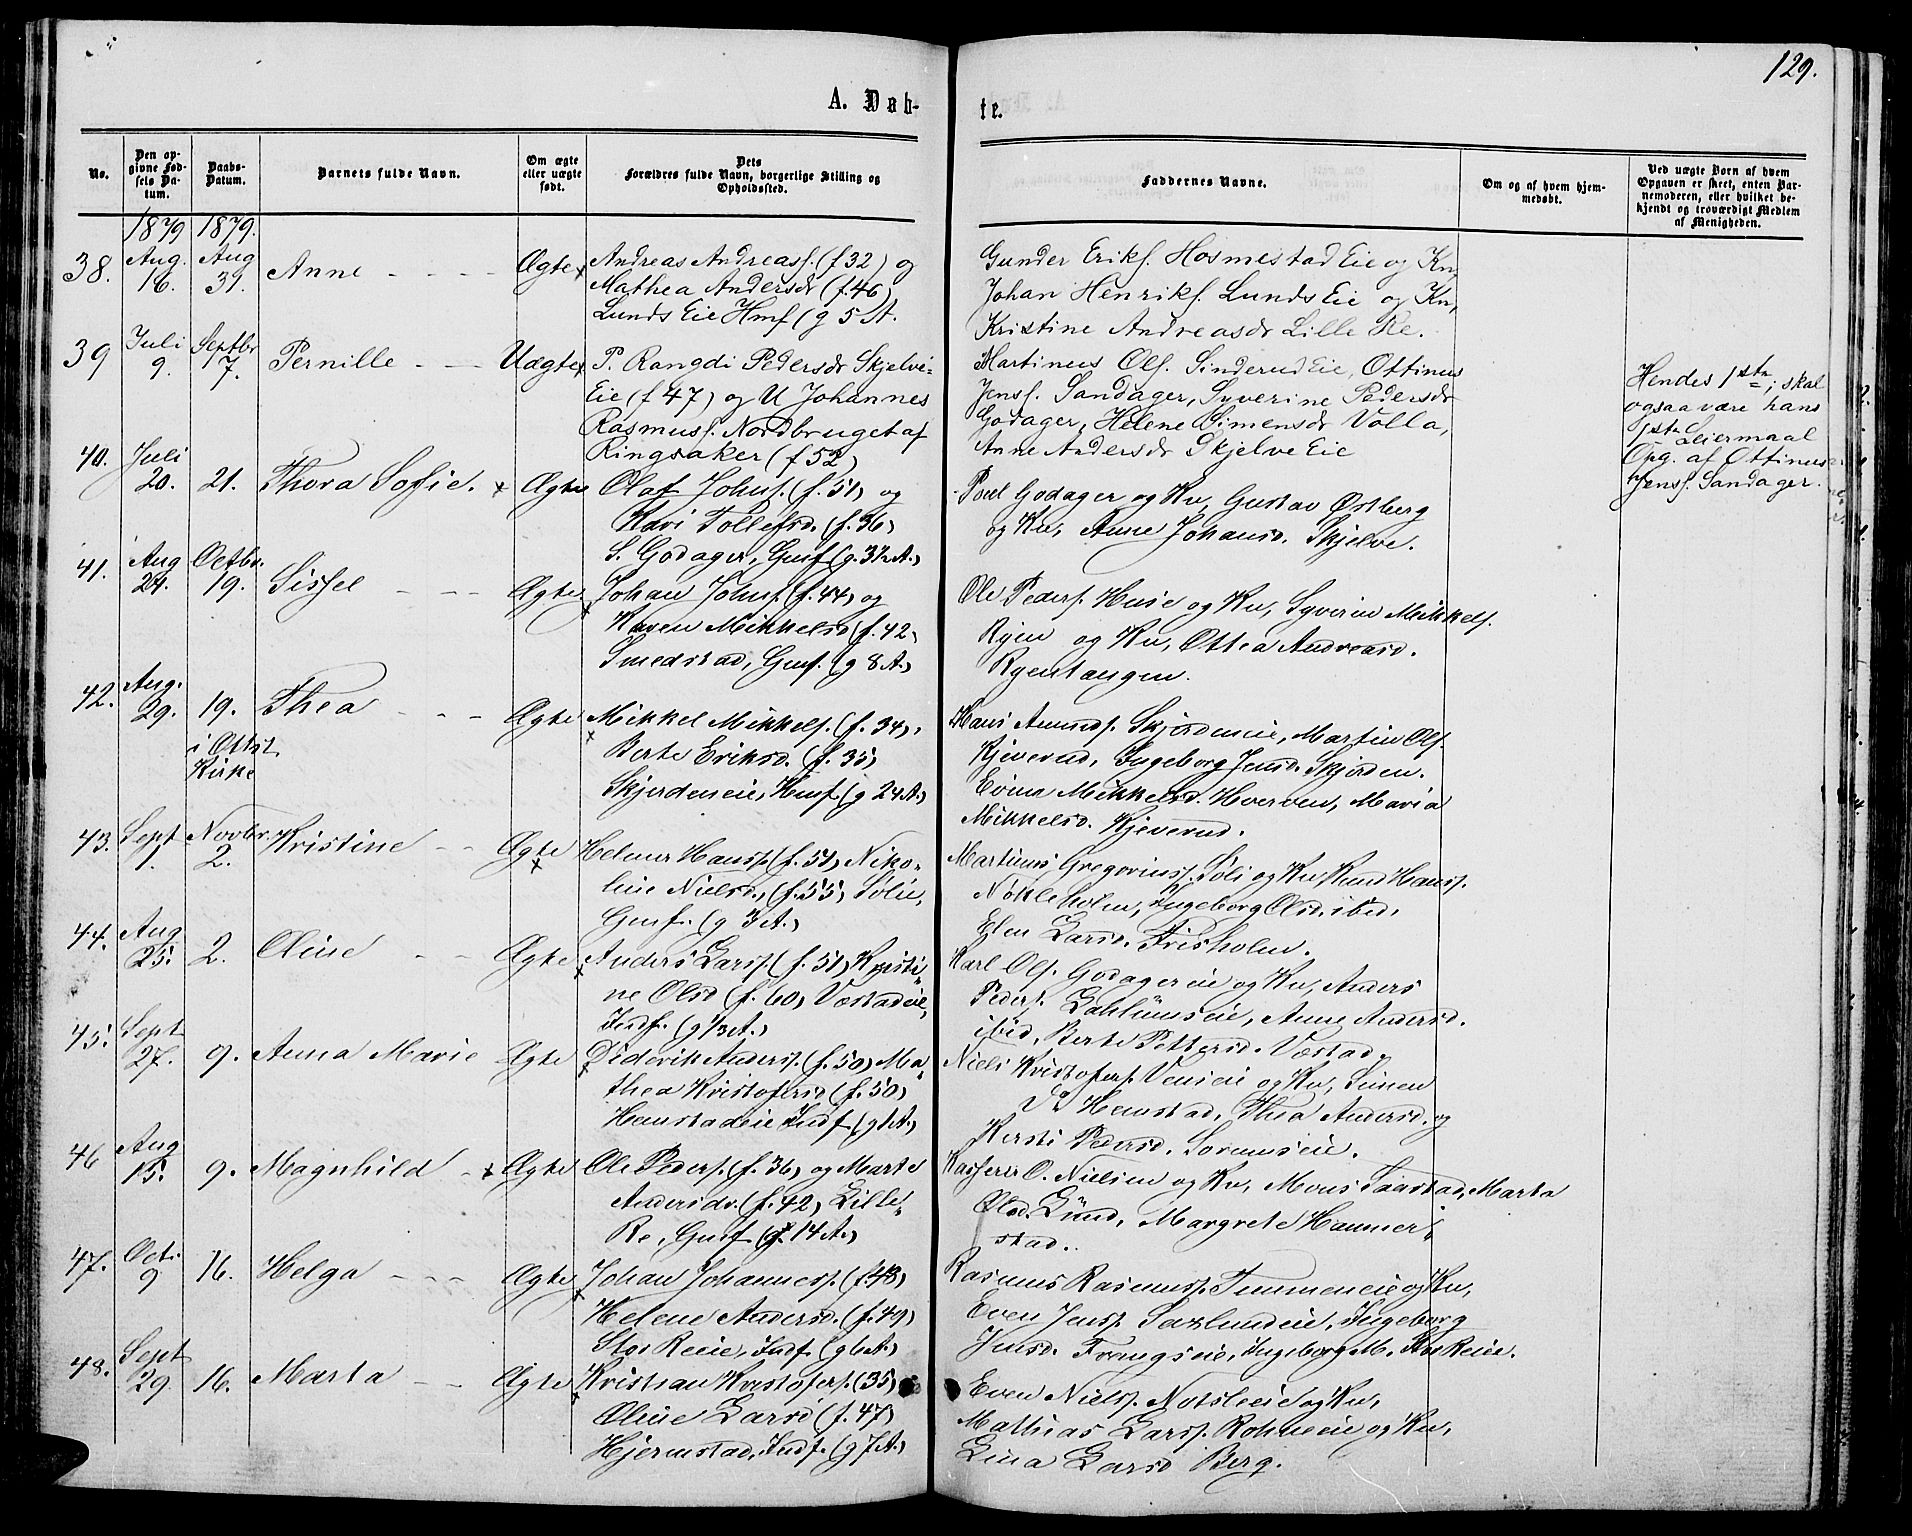 129.
A. Døb-
te.
No.
Den op-
givne Fød-
sels Da-
tum.
Daabs-
Datum.
Barnets fulde Navn.
Om ægte
eller uægte
født.
Dets
Forældres fulde Navn, borgerlige Stilling og
Opholdssted.
Faddernes Navne.
Om og af hvem hjem-
medøbt.
Ved uægte Born af hvem
Opgaven er skeet, enten Bar-
nemoderen, eller hvilket be-
kjendt og troværdigt Medlem
af Menigheden.
1879 1879.
38. Aug. 16. Aug 31. Anne - - - - Ægte Andreas Andreasſ. (f 32) og
Mathea Andersdr (f. 46)
Lunds Eie Hmf (g 5 A.
Gunder Eriksſ. Hosmestad Eie og Kn,
Johan Henriksſ. Lunds Eie og Kn,
Kristine Andreasdr Lille Re.
39 Juli 9. Septbr 7. Pernille - - Uægte P. Rangdi Pedersdr Skjelve-
Eie (f 47) og U Johannes
Rasmusſ. Nordbruget af
Ringsaker (f 52)
Martinus Olſ. Sinderud Eie, Ottinus
Jensſ. Sandager, Syverine Pedersdr
Godager, Helene Simensdr Volla,
Anne Andersdr Skjelve Eie
Hendes 1ste, skal
ogsaa være hans
1ste Leiermaal
Opg. af Ottinus
Jensſ. Sandager.
40. Juli 20. 21. Thora Sofie. Ægte Olaf Johnſ. (f. 51) og
Kari Tollefsd. (f. 56)
S. Godager, Gmf (g. 3½ A.)
Poul Godager og Kn, Gustav Østberg
og Kn, Anne Johansd. Skjelve.
41. Aug 24. Octbr. 19. Sissel - - - Ægte Johan Johnſ. (f. 44) og
Karen Mikkelsd (f. 42,
Smedstad, Gmf. (g 8 A.)
Ole Pederſ. Huse og Kn, Syverin Mikkelſ.
Ryen og Kn, Ottea Andreasd.
Ryentangen.
42. Aug. 29. 19. i Ottst Kirke Thea - - - Ægte Mikkel Mikkelſ. (f. 34),
Berte Eriksd. (f. 35)
Skjerdeneie, Hmf (g 24 A.)
Hans Amundſ. Skjerdeneie, Martin Olſ.
Kjeverud, Ingeborg Jensd. Skjerden.
Evine Mikkelsd. Hverven, Maria
Mikkelsd. Kjeverud.
43. Sept 1. Novbr. 2. Kristine - - Ægte Helmer Hansſ. (f. 54) Niko-
line Nielsd., (f. 55) Solie,
Gmf. (g 3 A.)
Martinus Gregoriusſ. Soli og Kn, Knud Hansſ.
Nokleholm, Ingeborg Olsd. ibid,
Elen Larsd. Frisholm.
44. Aug 25. 2. Oline - - Ægte Anders Larsſ. (f. 51) Kristi-
ne Olsd (f. 60) Væstadeie,
Indſ. (g ½ A.)
Karl Olſ. Godagereie og Kn, Anders
Pederſ. Dahlumseie, Anne Andersd.
ibid, Berte Pettersd. Væstad.
45. Sept 27. 9. Anna Marie Ægte Diderik Andersſ. (f. 50) Ma-
thea Kristofersd (f. 50)
Hemstadeie Indſ (g 1 A.)
Niels Kristoferſ. Venseie og Kn, Simen
Hemstad, Thea Andersd. og
Kersti Pedersd. Sorumseie.
46 Aug 15. 9. Magnhild - Ægte Ole Pederſ. (f. 36) og Marte
Andersdr. (f. 42) Lille-
Re, Gmf (g 14 A.)
Kasserer O. Nielsen og Kn, Mons Saastad, Marta
Olsd. Lund, Margrete Hammer-
stad.
47. Oct. 9 16. Helga - - - Ægte Johan Johannesſ. (f. 48)
Helene Andersd. (f. 49)
Stor Reeie, Indſ. (g 6 A.)
Rasmus Rasmusſ. Tummeneie og Kn,
Even Jensſ. Saxlundeie, Ingeborg
Jensd. Frangseie, Ingeborg M. Stor Reeie.
48. Sept 29 16. Marta - - Ægte Kristian Kristoferſ. (35)
Oline Larsd (f. 47)
Hjermstad, Indſ. (g 7 A.)
Even Nielsſ. Notsleeie og Kn,
Mathias Larsſ. Rohneeie og Kn,
Lina Larsd Berg.